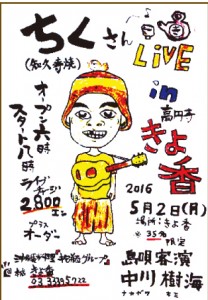 ちくさん
(知久寿焼)
LIVE
in
高円寺
きよ香
オープン六時
スタート八時
ライブチャージ
2800エン
プラス
オーダー
2016
5月2日(月)
場所:きよ香
※35名限定
島唄客演
中川樹海
ナカガワ キミ
きよ香
03.3339.5722